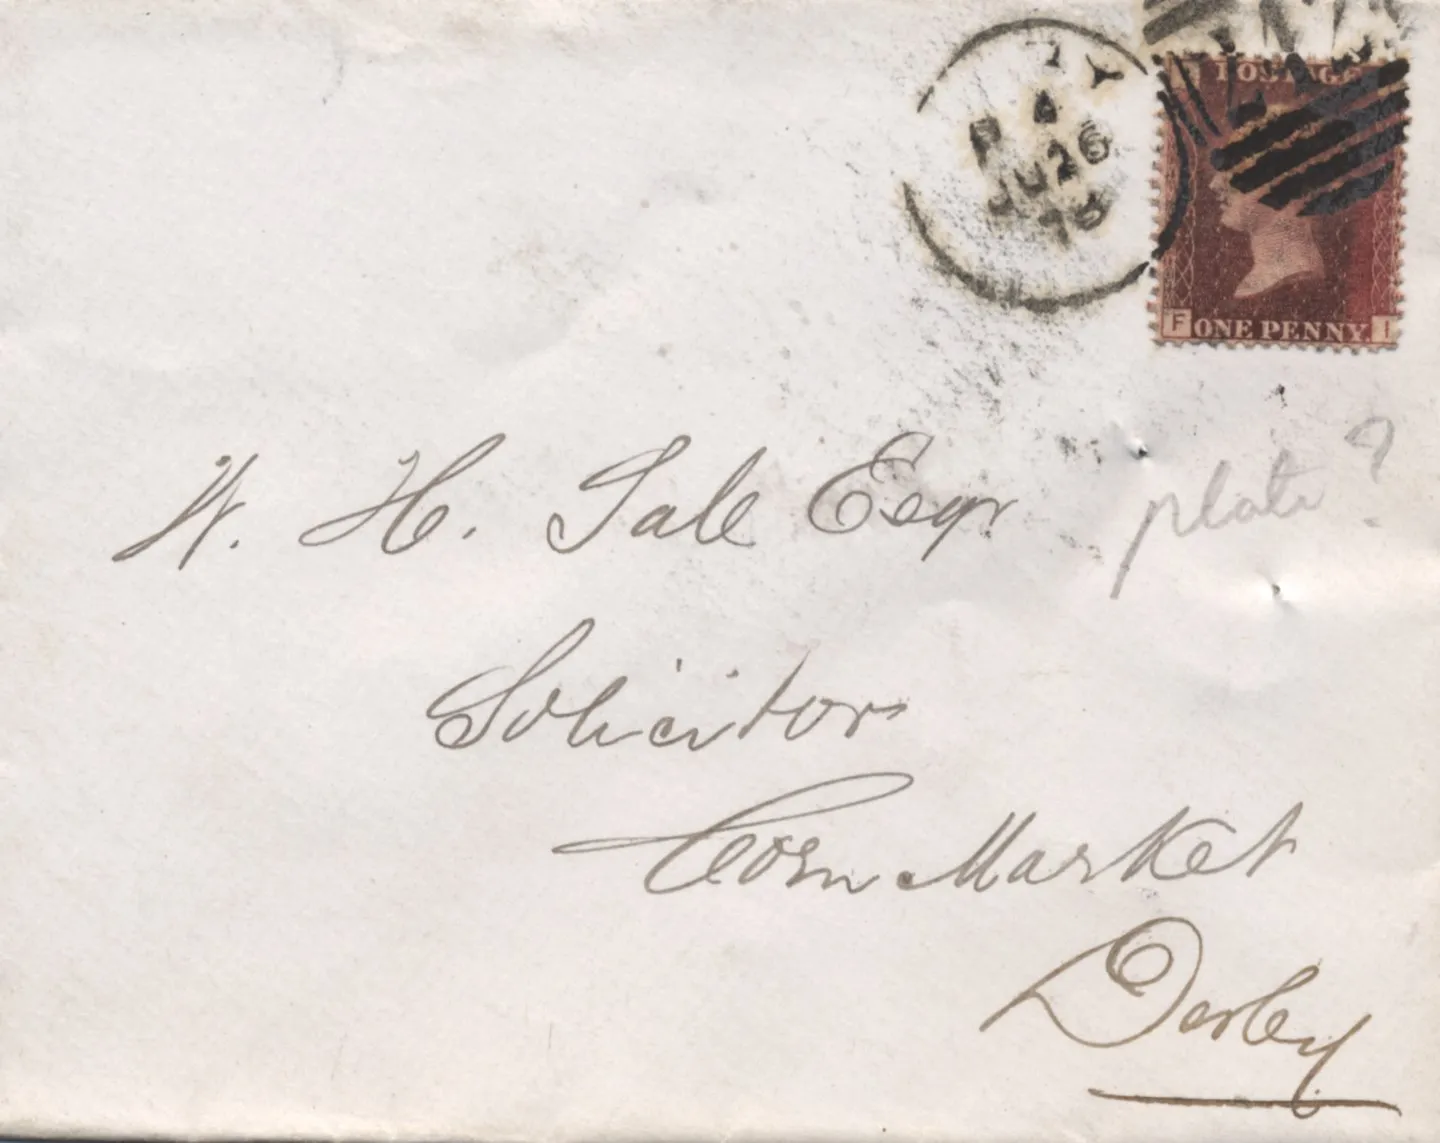 POSTAGE
A
JU 26
78
F ONE PENNY I
W. H. Sale Esqr
plate?
Solicitor
Corn Market
Derby